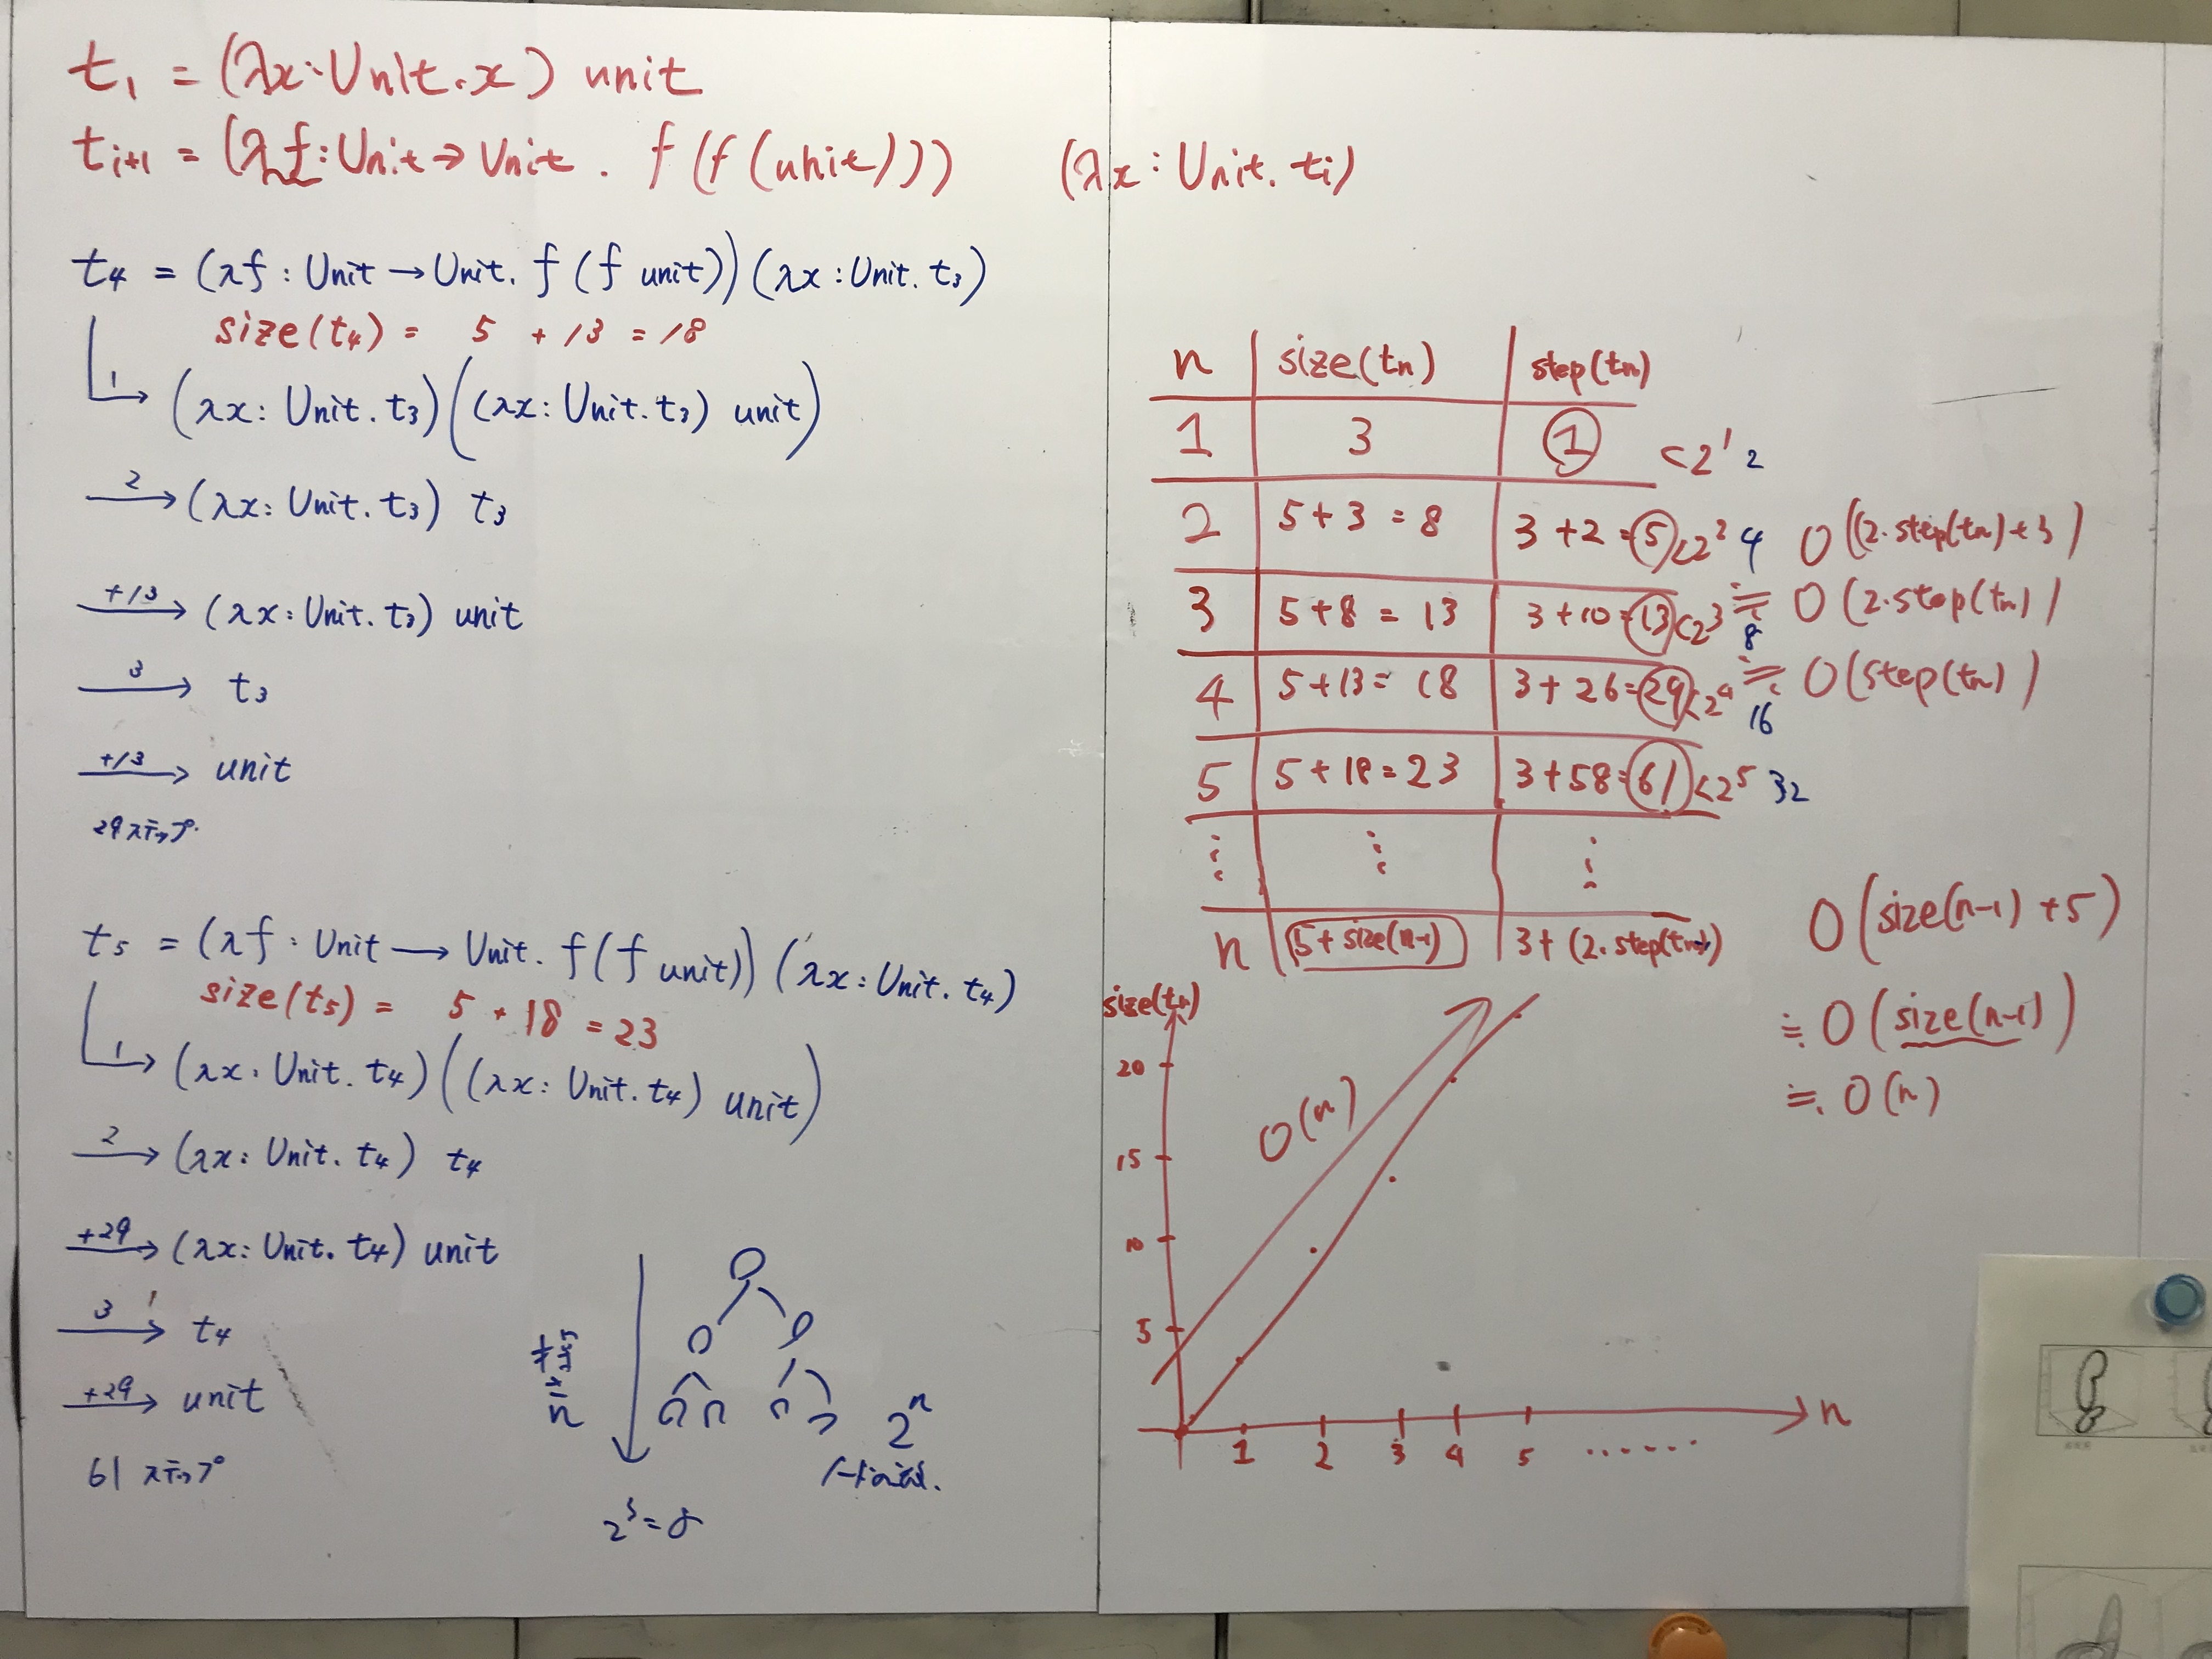 t₁ = (λx:Unit.x) unit
tᵢ₊₁ = (λf:Unit→Unit. f(f(unit))) (λx:Unit.tᵢ)
t₄ = (λf:Unit→Unit. f(f unit)) (λx:Unit. t₃)
size(t₄) = 5 + 13 = 18
1 (λx:Unit.t₃)((λx:Unit.t₃) unit)
2 (λx:Unit.t₃) t₃
+13 (λx:Unit.t₃) unit
3 t₃
+13 unit
29ステップ
t₅ = (λf:Unit→Unit. f(f unit)) (λx:Unit. t₄)
size(t₅) = 5 + 18 = 23
1 (λx:Unit.t₄)((λx:Unit.t₄) unit)
2 (λx:Unit.t₄) t₄
+29 (λx:Unit.t₄) unit
3 t₄
+29 unit
61 ステップ
n
2ⁿ
2³=8
n size(tₙ) step(tₙ)
1 3 1 <2¹ 2
2 5+3=8 3+2=5 <2² 4 O(2·step(tₙ)+3)
3 5+8=13 3+10=13 <2³ 8 ≒ O(2·step(tₙ))
4 5+13=18 3+26=29 <2⁴ 16 ≒ O(step(tₙ))
5 5+18=23 3+58=61 <2⁵ 32
⋮ ⋮ ⋮
n 5+size(n-1) 3+(2·step(tₙ₋₁))
O(size(n-1)+5)
≒ O(size(n-1))
≒ O(n)
size(tₙ)
20
15
10
5
O(n)
1 2 3 4 5 ...... n